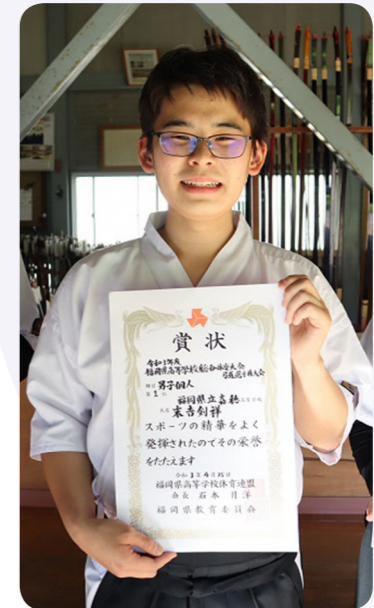 賞状
令和3年度
福岡県高等学校総合体育大会
弓道選手権大会
種目 男子個人
第1位
福岡県立嘉穂高等学校
氏名 末吉剣祥
スポーツの精華をよく
発揮されたのでその栄誉
をたたえます
福岡県高等学校体育連盟
会長
福岡県教育委員会